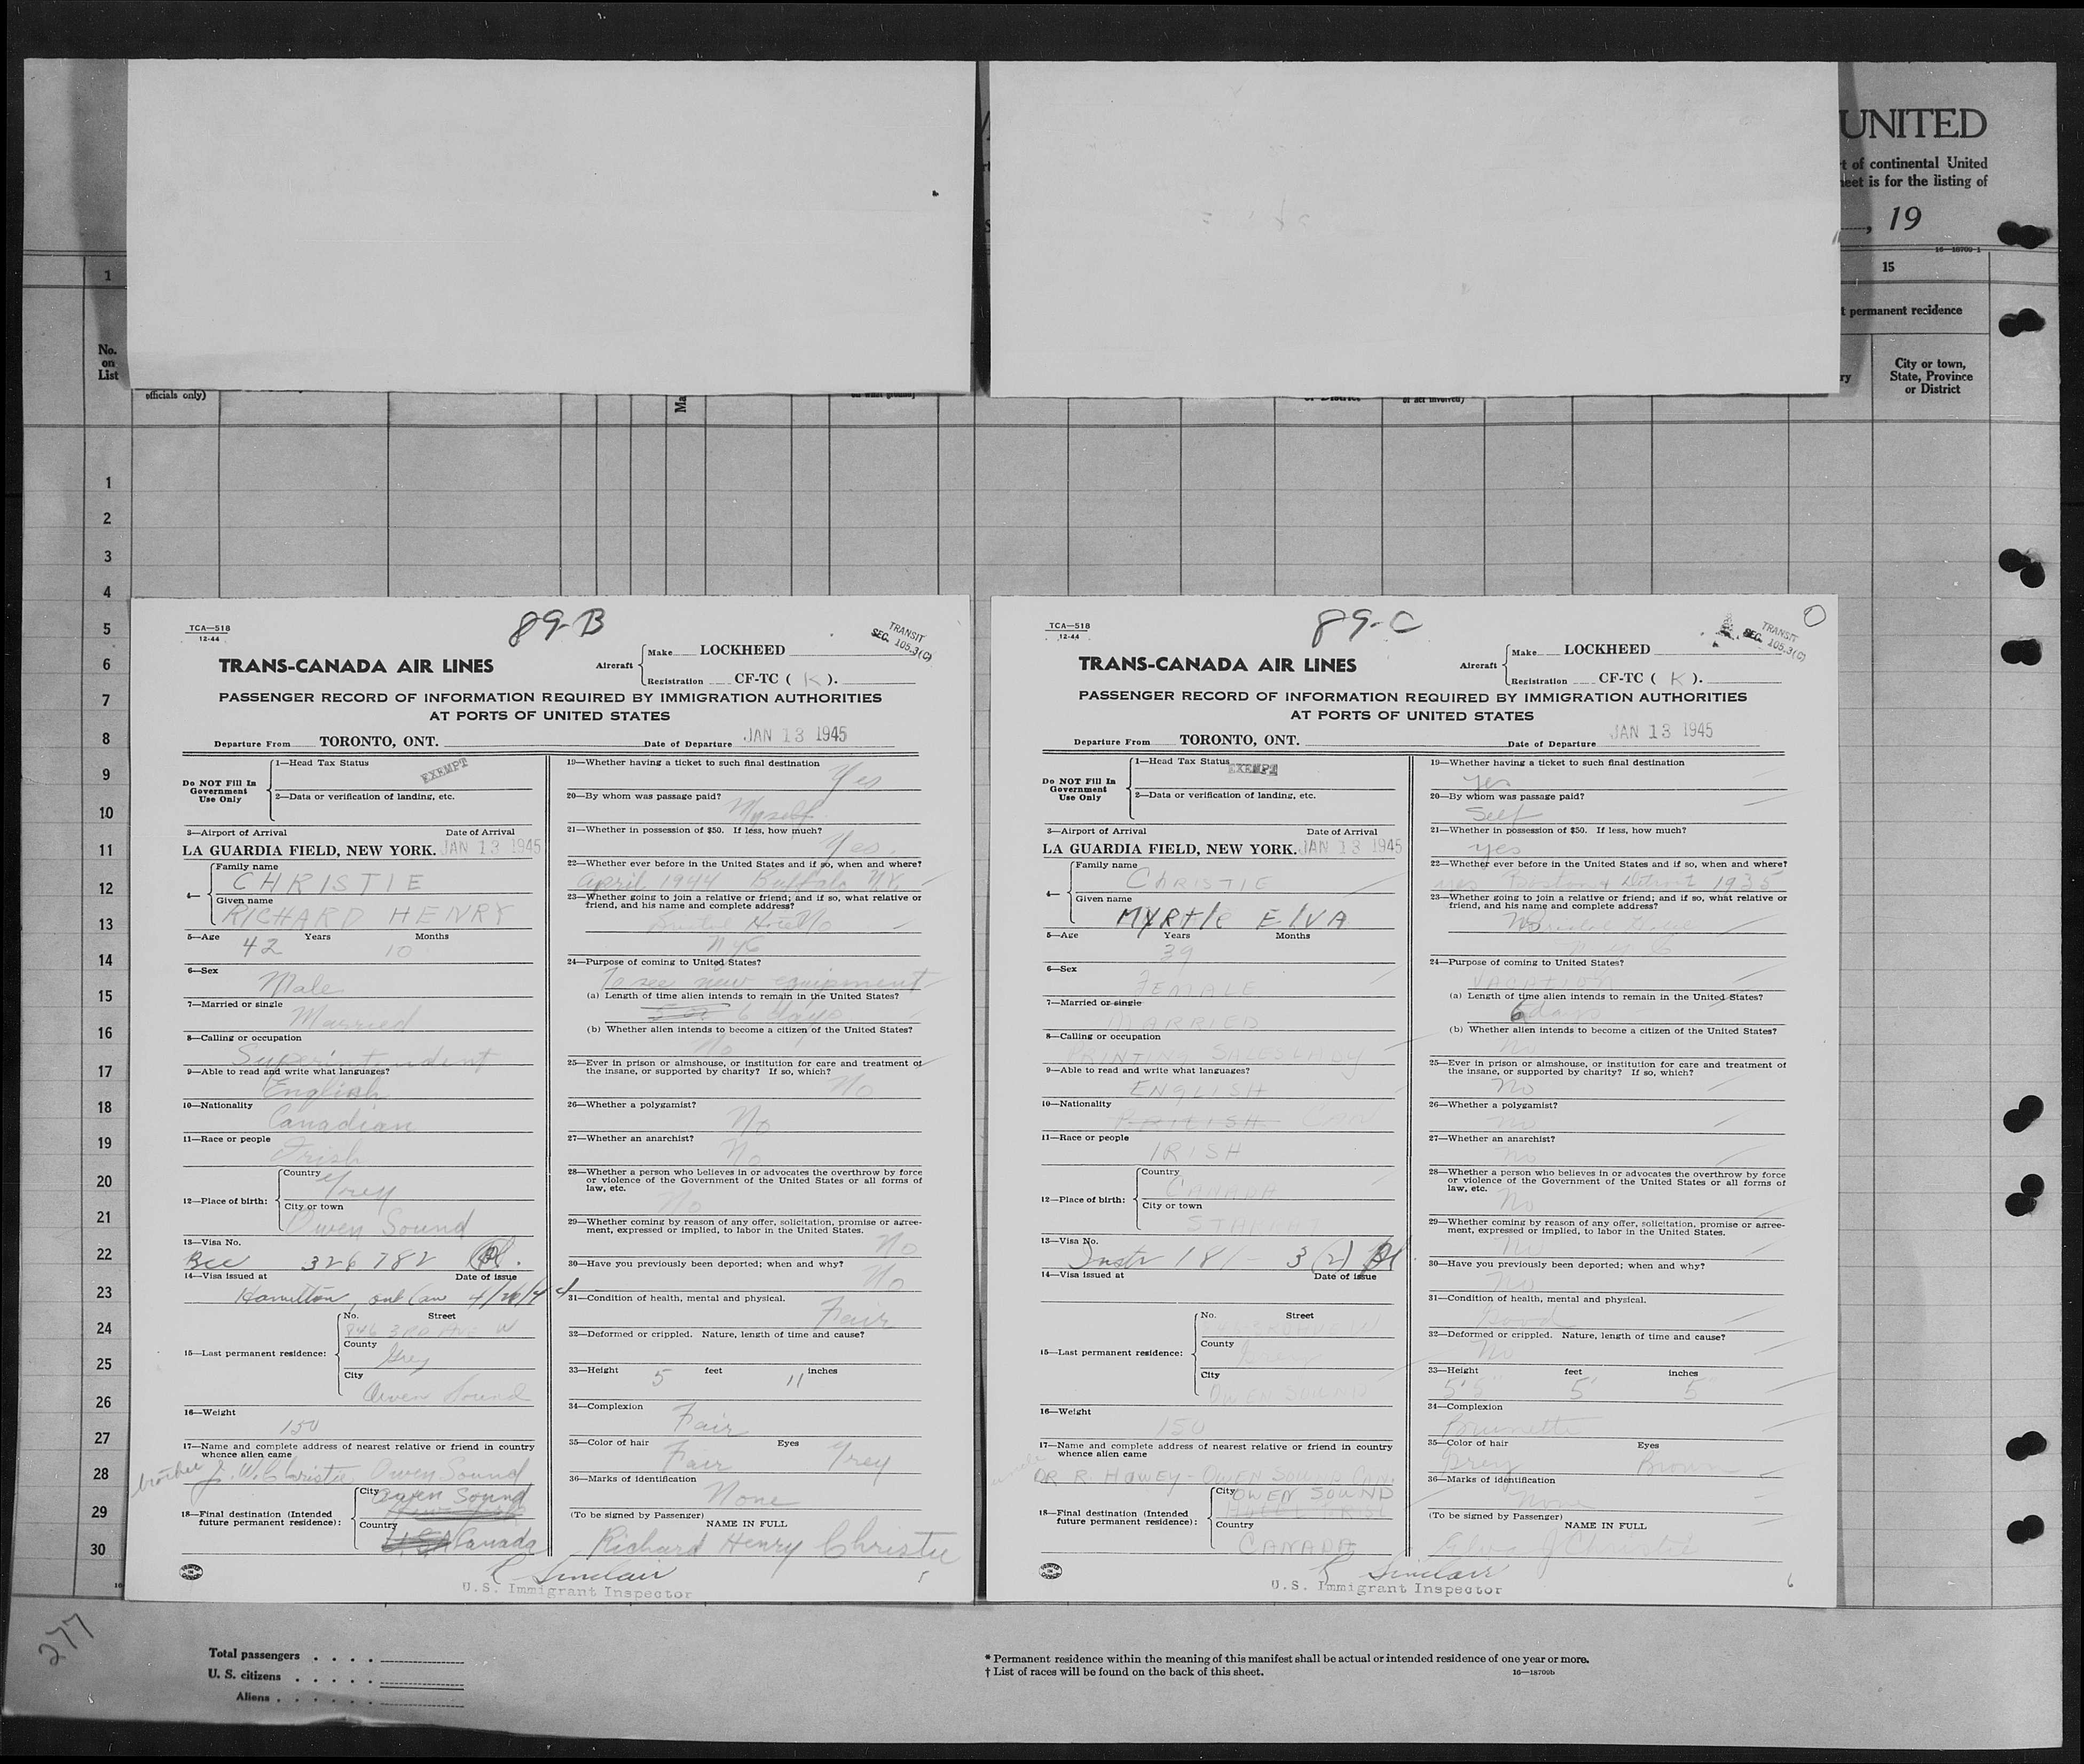 UNITED
t of continental United
heet is for the listing of
, 19
16—18709-1
1
15
t permanent residence
No.
on
List
City or town,
State, Province
or District
ry
officials only)
Ma
1
2
3
4
5
6
7
8
9
10
11
12
13
14
15
16
17
18
19
20
21
22
23
24
25
26
27
28
29
30
89-B
TCA—518
12-44
TRANSIT
SEC. 105.3(C)
TRANS-CANADA AIR LINES
Aircraft
Make LOCKHEED
Registration CF-TC ( K ).
PASSENGER RECORD OF INFORMATION REQUIRED BY IMMIGRATION AUTHORITIES
AT PORTS OF UNITED STATES
Departure From TORONTO, ONT. Date of Departure JAN 13 1945
Do NOT Fill In
Government
Use Only
1—Head Tax Status EXEMPT
2—Data or verification of landing, etc.
3—Airport of Arrival Date of Arrival
LA GUARDIA FIELD, NEW YORK. JAN 13 1945
4— Family name
CHRISTIE
Given name
RICHARD HENRY
5—Age 42 Years 10 Months
6—Sex
Male
7—Married or single
Married
8—Calling or occupation
Superintendent
9—Able to read and write what languages?
English
10—Nationality
Canadian
11—Race or people
Irish
12—Place of birth:
Country
Grey
City or town
Owen Sound
13—Visa No.
Bcc 326782
14—Visa issued at Date of issue
Hamilton, ont Can 4/26/44
15—Last permanent residence:
No. Street
846 3RD AVE W
County
Grey
City
Owen Sound
16—Weight
150
17—Name and complete address of nearest relative or friend in country
whence alien came
brother J. W. Christie Owen Sound
18—Final destination (Intended
future permanent residence):
City Owen Sound
Country
U.S.A Canada
19—Whether having a ticket to such final destination
Yes
20—By whom was passage paid?
Myself
21—Whether in possession of $50. If less, how much?
Yes.
22—Whether ever before in the United States and if so, when and where?
April 1944 Buffalo N.Y.
23—Whether going to join a relative or friend; and if so, what relative or
friend, and his name and complete address?
Hotel No
NYC
24—Purpose of coming to United States?
To see new equipment
(a) Length of time alien intends to remain in the United States?
6 days
(b) Whether alien intends to become a citizen of the United States?
No
25—Ever in prison or almshouse, or institution for care and treatment of
the insane, or supported by charity? If so, which?
No
26—Whether a polygamist?
No
27—Whether an anarchist?
No
28—Whether a person who believes in or advocates the overthrow by force
or violence of the Government of the United States or all forms of
law, etc.
No
29—Whether coming by reason of any offer, solicitation, promise or agree-
ment, expressed or implied, to labor in the United States.
No
30—Have you previously been deported; when and why?
No
31—Condition of health, mental and physical.
Fair
32—Deformed or crippled. Nature, length of time and cause?
33—Height 5 feet 11 inches
34—Complexion
Fair
35—Color of hair Eyes
Fair Grey
36—Marks of identification
None
(To be signed by Passenger)
NAME IN FULL
Richard Henry Christie
R Sinclair
U.S. Immigrant Inspector
5
89-C
TCA—518
12-44
TRANSIT
SEC. 105.3(C)
TRANS-CANADA AIR LINES
Aircraft
Make LOCKHEED
Registration CF-TC ( K ).
PASSENGER RECORD OF INFORMATION REQUIRED BY IMMIGRATION AUTHORITIES
AT PORTS OF UNITED STATES
Departure From TORONTO, ONT. Date of Departure JAN 13 1945
Do NOT Fill In
Government
Use Only
1—Head Tax Status EXEMPT
2—Data or verification of landing, etc.
3—Airport of Arrival Date of Arrival
LA GUARDIA FIELD, NEW YORK. JAN 13 1945
4— Family name
CHRISTIE
Given name
MYRtlE ElVA
5—Age Years Months
39
6—Sex
FEMALE
7—Married or single
MARRIED
8—Calling or occupation
PRINTING SALESLADY
9—Able to read and write what languages?
ENGLISH
10—Nationality
BRITISH Can
11—Race or people
IRISH
12—Place of birth:
Country
CANADA
City or town
13—Visa No.
Instr 181- 3(2)
14—Visa issued at Date of issue
15—Last permanent residence:
No. Street
County
Grey
City
OWEN SOUND
16—Weight
150
17—Name and complete address of nearest relative or friend in country
whence alien came
DR R. HOWEY - OWEN SOUND CAN.
18—Final destination (Intended
future permanent residence):
City OWEN SOUND
Country
CANADA
19—Whether having a ticket to such final destination
yes
20—By whom was passage paid?
Self
21—Whether in possession of $50. If less, how much?
yes
22—Whether ever before in the United States and if so, when and where?
yes Boston & Detroit 1935
23—Whether going to join a relative or friend; and if so, what relative or
friend, and his name and complete address?
No
24—Purpose of coming to United States?
VACATION
(a) Length of time alien intends to remain in the United States?
6 days
(b) Whether alien intends to become a citizen of the United States?
No
25—Ever in prison or almshouse, or institution for care and treatment of
the insane, or supported by charity? If so, which?
No
26—Whether a polygamist?
No
27—Whether an anarchist?
No
28—Whether a person who believes in or advocates the overthrow by force
or violence of the Government of the United States or all forms of
law, etc.
No
29—Whether coming by reason of any offer, solicitation, promise or agree-
ment, expressed or implied, to labor in the United States.
No
30—Have you previously been deported; when and why?
No
31—Condition of health, mental and physical.
Good
32—Deformed or crippled. Nature, length of time and cause?
No
33—Height feet inches
5'5" 5' 5
34—Complexion
Brunette
35—Color of hair Eyes
Grey Brown
36—Marks of identification
None
(To be signed by Passenger)
NAME IN FULL
Elva J Christie
R Sinclair
U.S. Immigrant Inspector
6
277
Total passengers
U. S. citizens
Aliens
* Permanent residence within the meaning of this manifest shall be actual or intended residence of one year or more.
† List of races will be found on the back of this sheet. 16—18709b